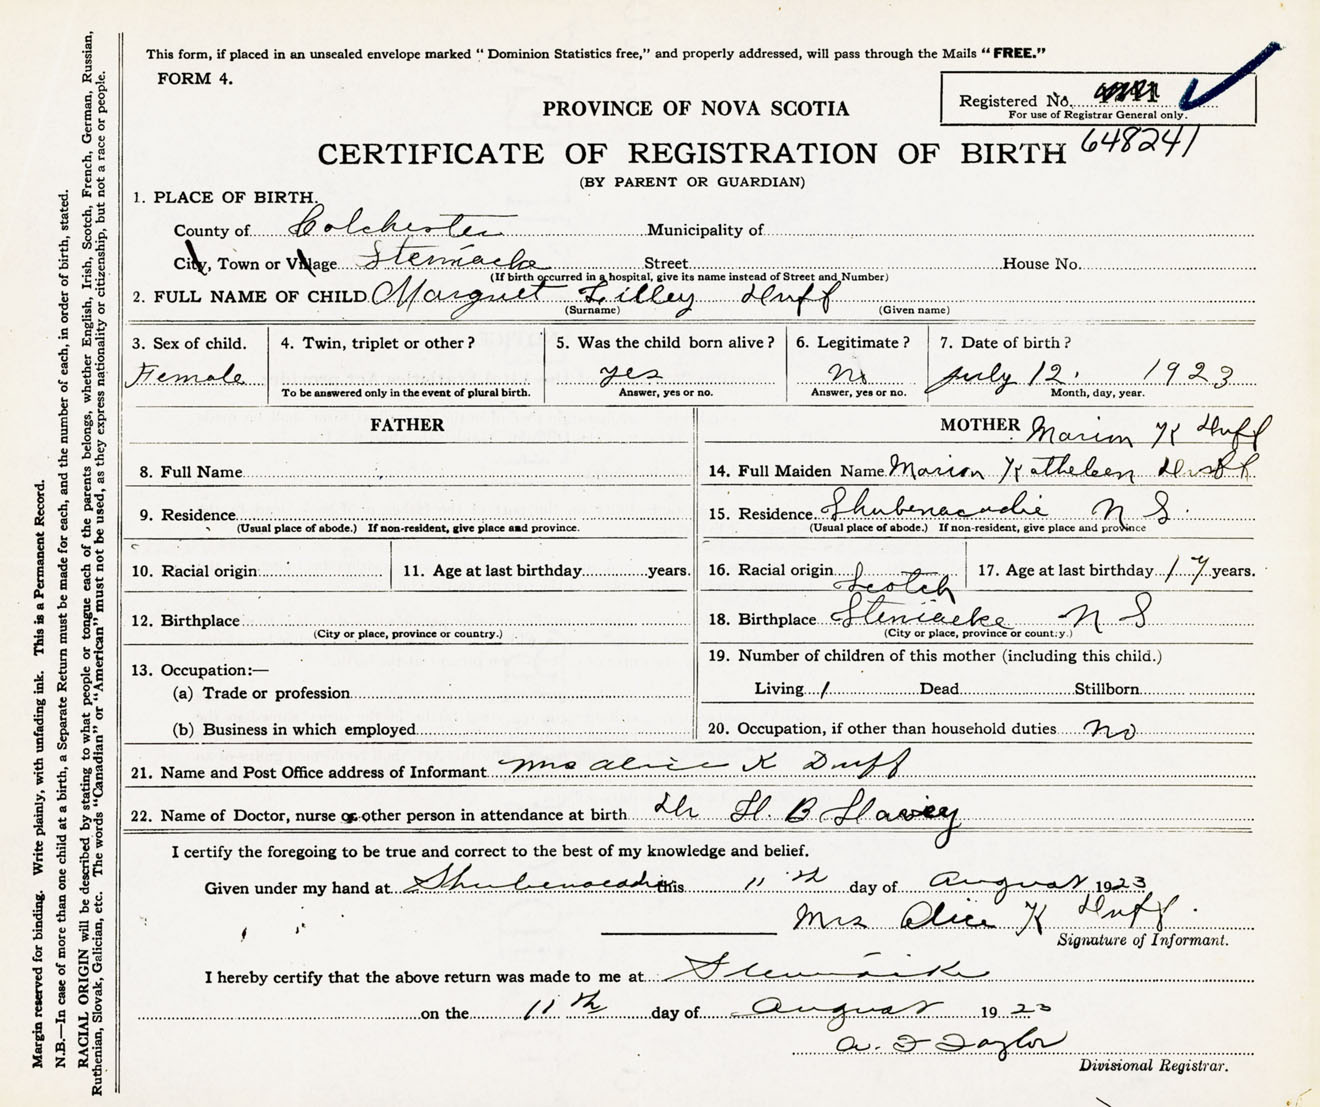 This form, if placed in an unsealed envelope marked "Dominion Statistics free," and properly addressed, will pass through the Mails "FREE."
FORM 4.
Registered No.
For use of Registrar General only.
648241
PROVINCE OF NOVA SCOTIA
CERTIFICATE OF REGISTRATION OF BIRTH
(BY PARENT OR GUARDIAN)
1. PLACE OF BIRTH.
County of Colchester Municipality of
City, Town or Village Steniacke Street House No.
(If birth occurred in a hospital, give its name instead of Street and Number)
2. FULL NAME OF CHILD Margret Lilley Duff
(Surname) (Given name)
3. Sex of child. 4. Twin, triplet or other? 5. Was the child born alive? 6. Legitimate? 7. Date of birth?
Female yes No July 12. 1923
To be answered only in the event of plural birth. Answer, yes or no. Answer, yes or no. Month, day, year.
FATHER
8. Full Name
9. Residence
(Usual place of abode.) If non-resident, give place and province.
10. Racial origin 11. Age at last birthday years.
12. Birthplace
(City or place, province or country.)
13. Occupation:—
(a) Trade or profession
(b) Business in which employed
MOTHER Marion K Duff
14. Full Maiden Name Marion Kathleen Duff
15. Residence Shubenacadie N S.
(Usual place of abode.) If non-resident, give place and province
16. Racial origin Scotch 17. Age at last birthday 17 years.
18. Birthplace Steniacke N S
(City or place, province or country.)
19. Number of children of this mother (including this child.)
Living 1 Dead Stillborn
20. Occupation, if other than household duties No
21. Name and Post Office address of Informant Mrs Alice K Duff
22. Name of Doctor, nurse or other person in attendance at birth Dr H. B Havey
I certify the foregoing to be true and correct to the best of my knowledge and belief.
Given under my hand at Shubenacadie this 11th day of August 1923
Mrs Alice K Duff.
Signature of Informant.
I hereby certify that the above return was made to me at
on the 11th day of August 1923
A. F Taylor
Divisional Registrar.
Margin reserved for binding. Write plainly, with unfading ink. This is a Permanent Record.
N.B.—In case of more than one child at a birth, a Separate Return must be made for each, and the number of each, in order of birth, stated.
RACIAL ORIGIN will be described by stating to what people or tongue each of the parents belongs, whether English, Irish, Scotch, French, German, Russian,
Ruthenian, Slovak, Galician, etc. The words "Canadian" or "American" must not be used, as they express nationality or citizenship, but not a race or people.